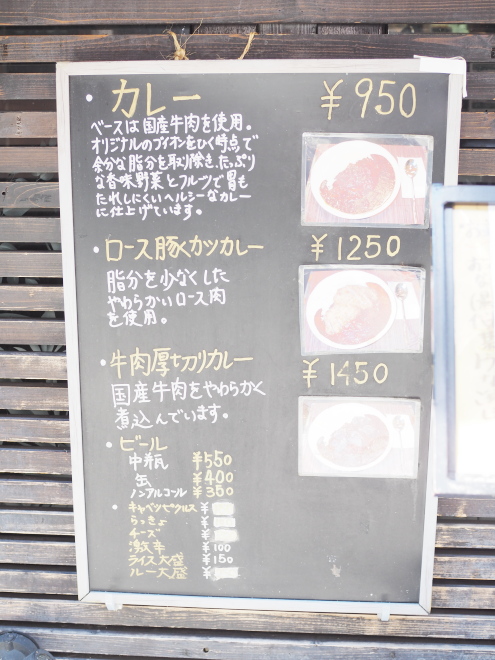 ・カレー ¥950
ベースは国産牛肉を使用。
オリジナルのブイヨンをひく時点で
余分な脂分を取り除き、たっぷり
な香味野菜とフルーツで胃も
たれしにくいヘルシーなカレー
に仕上げています。
・ロース豚カツカレー ¥1250
脂分を少なくした
やわらかいロース肉
を使用。
・牛肉厚切りカレー ¥1450
国産牛肉をやわらかく
煮込んでいます。
・ビール
中瓶 ¥550
缶 ¥400
ノンアルコール ¥350
・キャベツピクルス ¥
らっきょ ¥
チーズ ¥
激辛 ¥100
ライス大盛 ¥150
ルー大盛 ¥